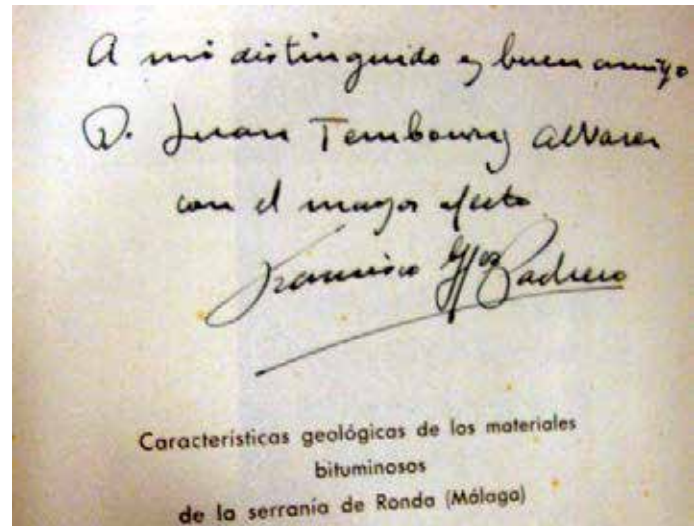 A mi distinguido y buen amigo
D. Juan Temboury Alvarez
con el mayor afecto
Francisco Hdez Pacheco
Características geológicas de los materiales
bituminosos
de la serranía de Ronda (Málaga)